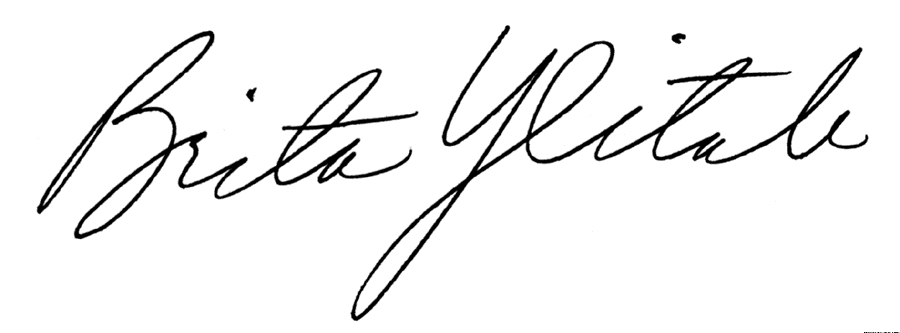 Brita Ylitalo